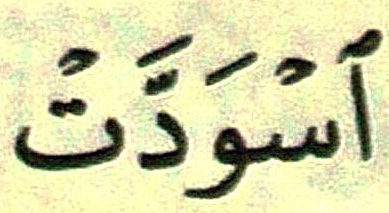 ٱسْوَدَّتْ